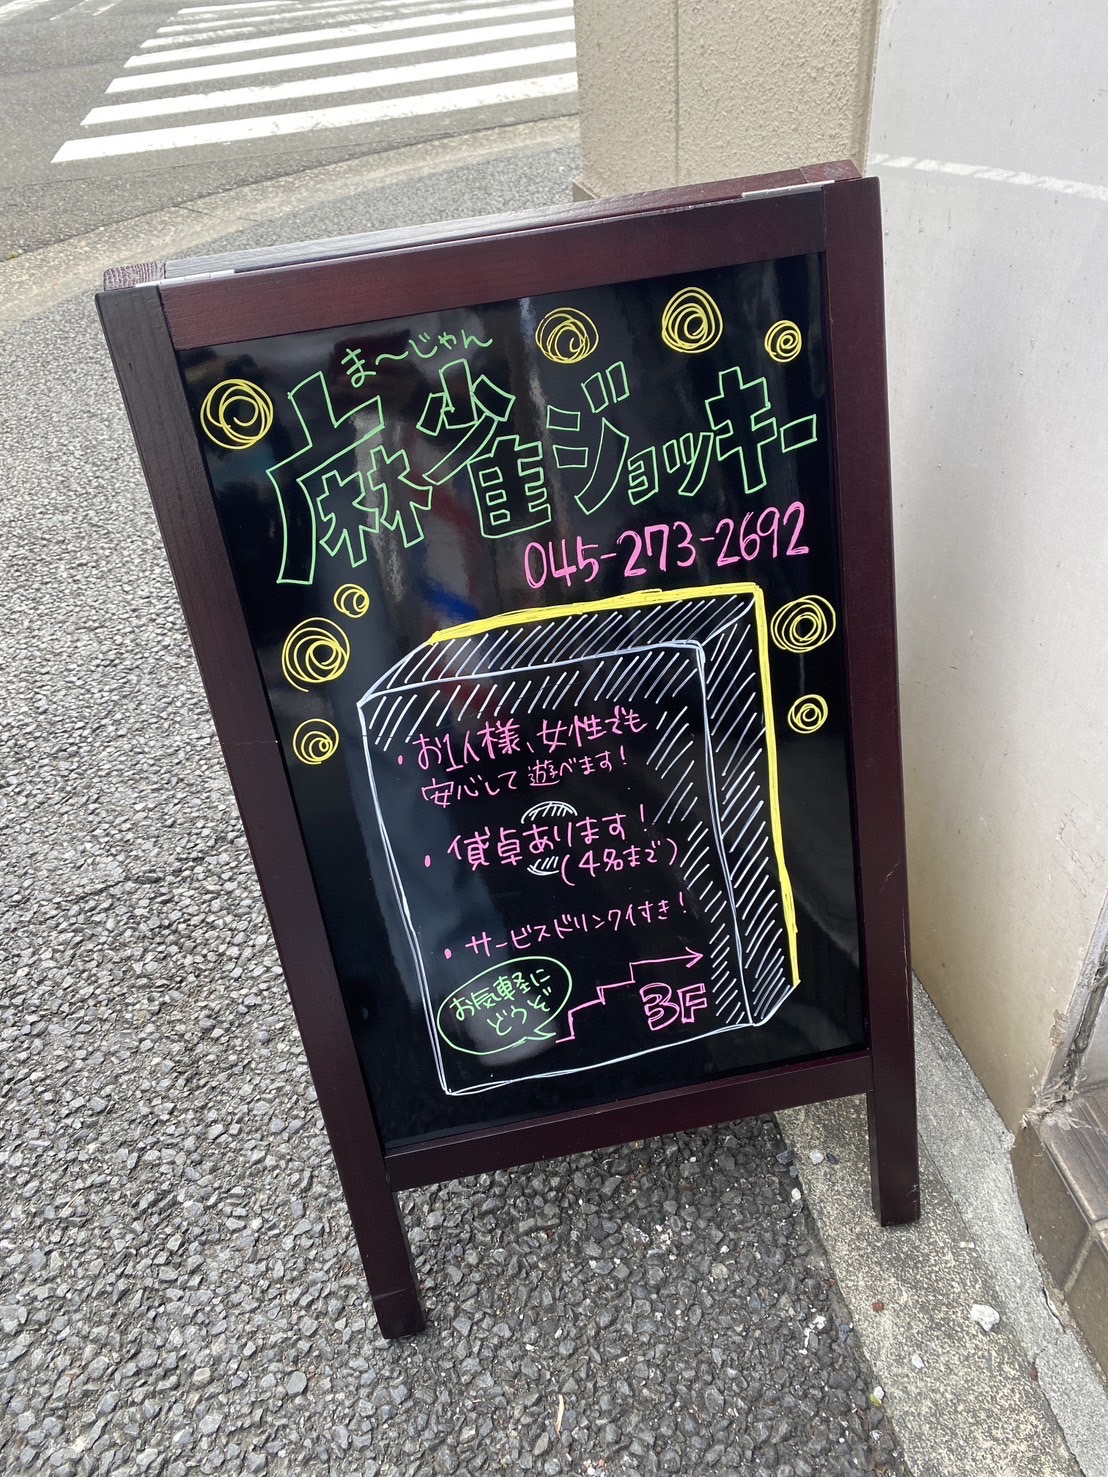 ま〜じゃん
麻雀ジョッキー
045-273-2692
・お1人様、女性でも
安心して遊べます!
・貸卓あります!
(4名まで)
・サービスドリンク付き!
お気軽に
どうぞ
3F